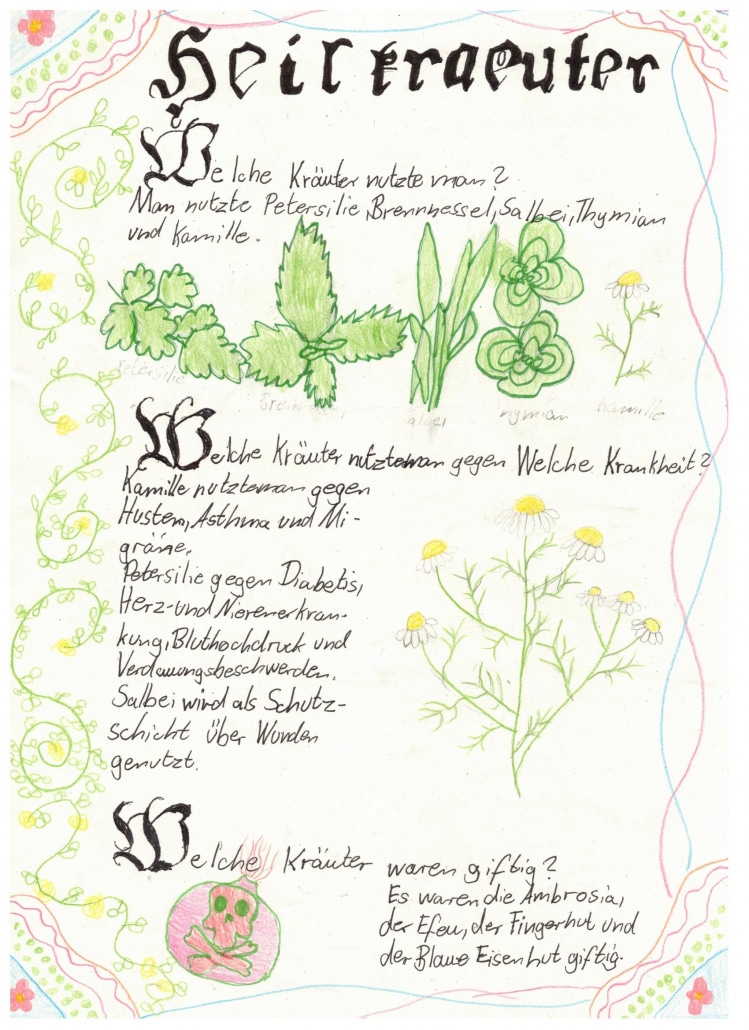 Heilkraeuter
Welche Kräuter nutzte man?
Man nutzte Petersilie, Brennnessel, Salbei, Thymian
und Kamille.
Petersilie
Brennnessel
Salbei
Thymian
Kamille
Welche Kräuter nutzteman gegen Welche Krankheit?
Kamille nutzteman gegen
Husten, Asthma und Mi-
gräne.
Petersilie gegen Diabetis,
Herz-und Nierenerkran-
kung, Bluthochdruck und
Verdauungsbeschwerden.
Salbei wird als Schutz-
schicht Über Wunden
genutzt.
Welche Kräuter waren giftig?
Es waren die Ambrosia,
der Efeu, der Fingerhut und
der Blaue Eisenhut giftig.